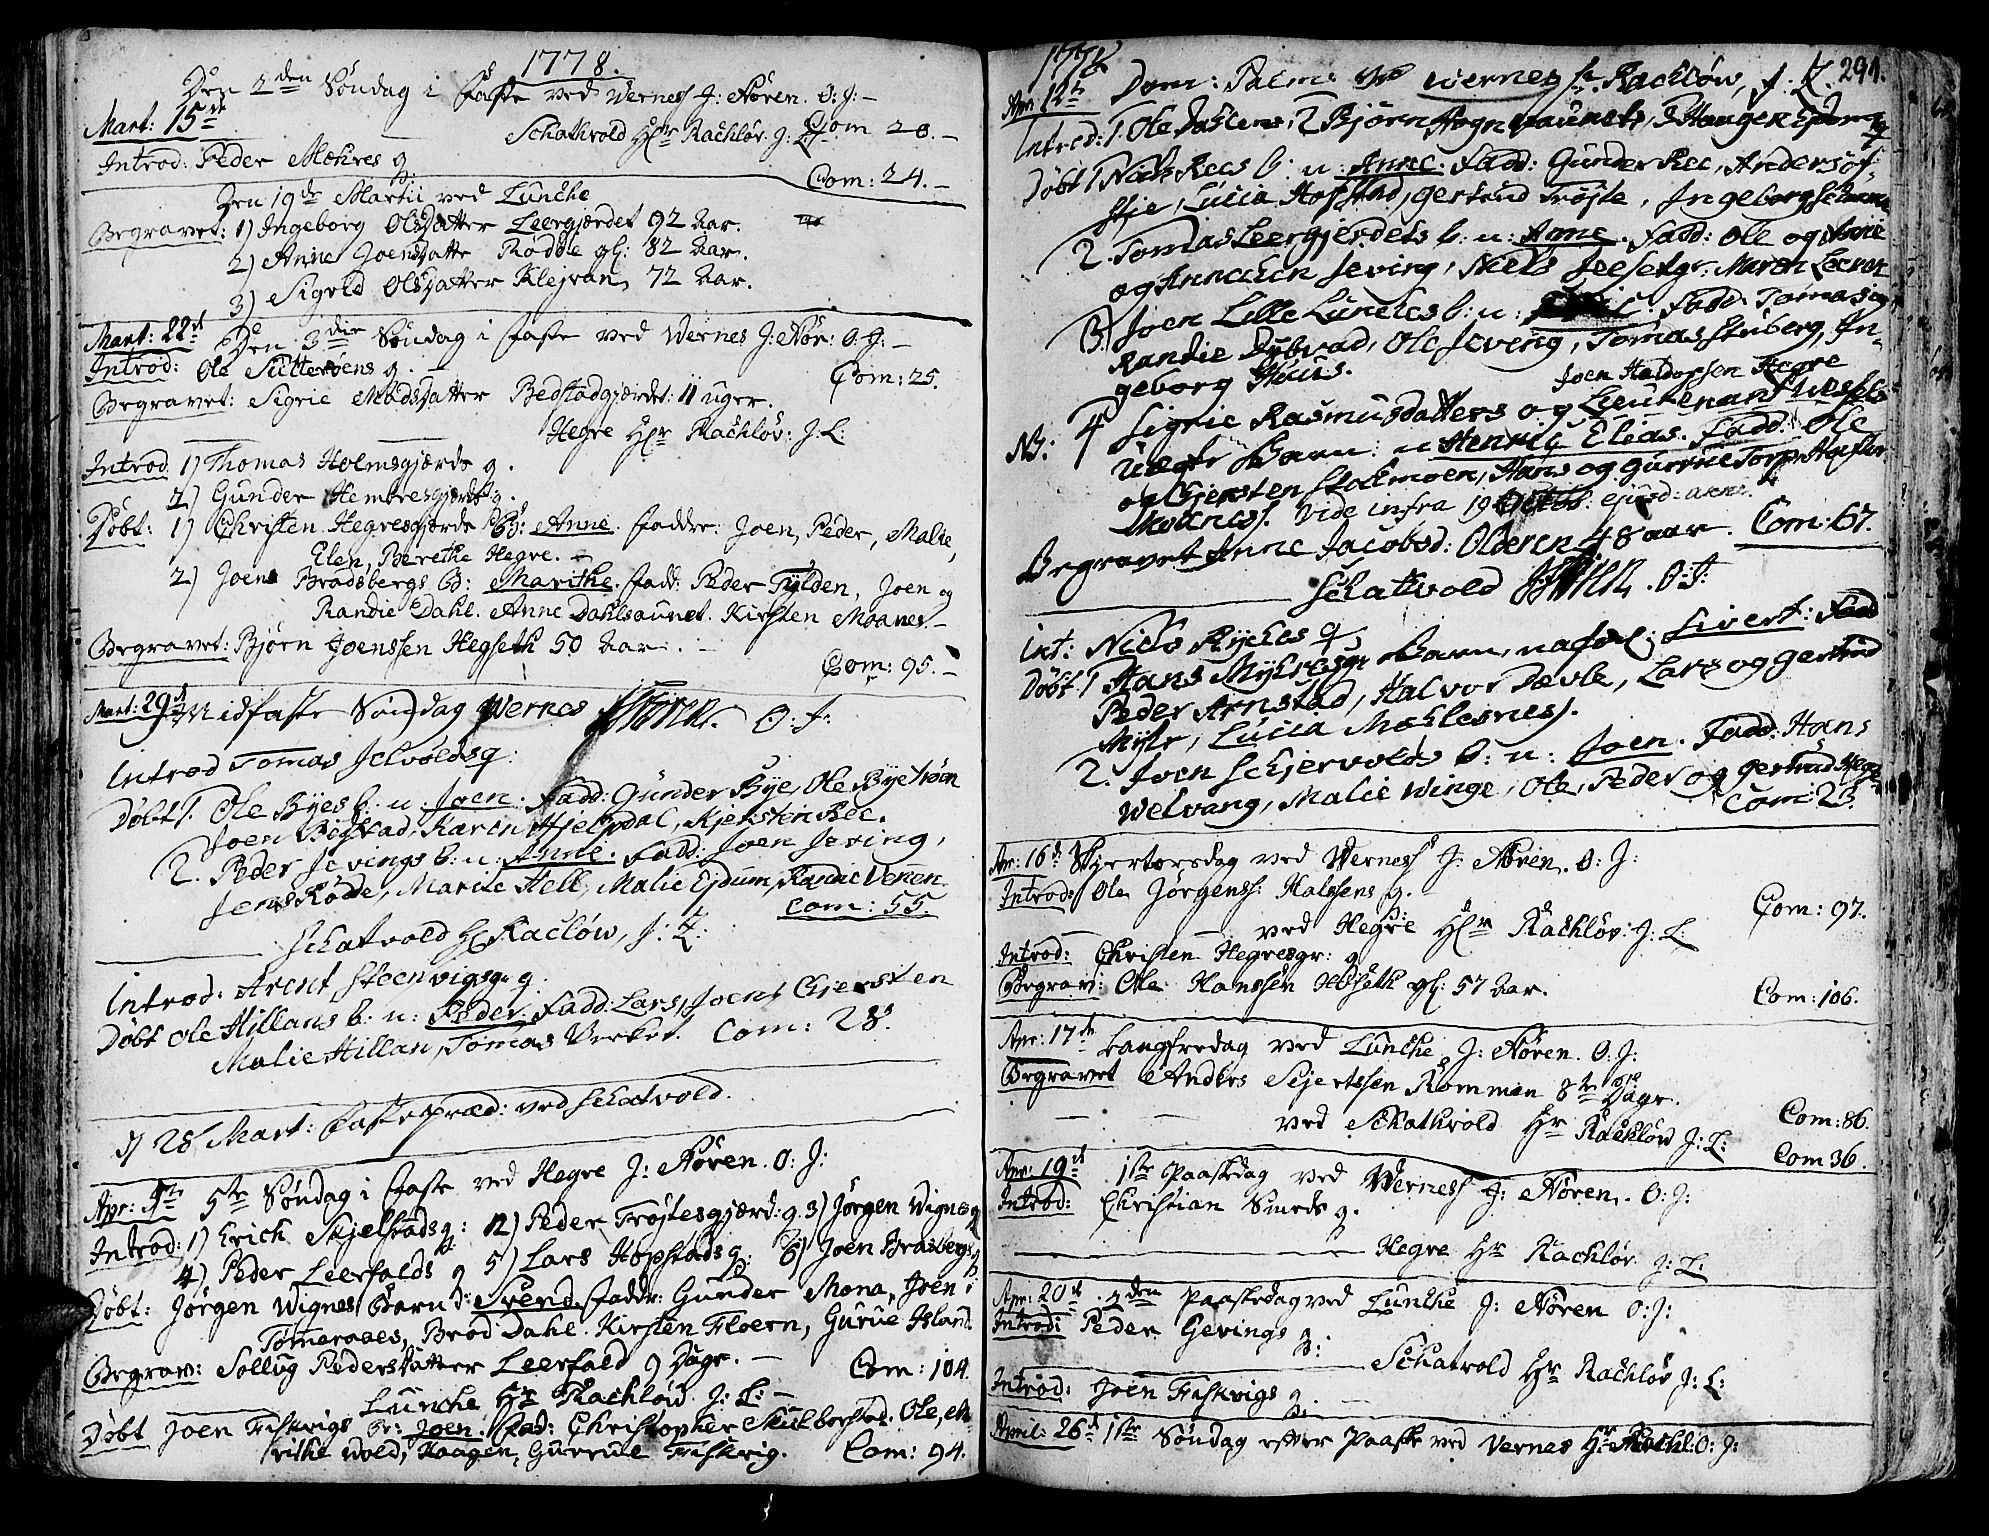 1778.
Den 2den Søndag i Faste ved Vernes J: Nøren. O: J: –
Mart: 15de
Com 20. –
Schatvold Hr Rachløv. J: L:
Introd: Peder Mæhres q.
Com: 24. –
Den 19de Martii ved Lunche
Begravet: 1) Ingeborg Olsdatter Leergjærdet 92 Aar.
2) Anne Joensdatte Rødde gl: 82 Aar.
3) Sigrid Olsdatter Klejvan, 72 Aar.
Mart: 22de Den 3die Søndag i Faste ved Wernes J: Nør: O: J: –
Introd: Ole Sutterøens q.
Com: 25.
Begravet: Sigrie Madsdatter Bedstadgjærdet: 11 uger.
Hegre Hr Rachløv: J: L:
Introd 1) Thomas Holmsgjærds q.
2) Gunder Hembresgjærds q.
Døbt: 1) Christen Hegresgjærde B: Anne. Faddr: Joen, Peder, Malie,
Elen, Berethe Hegre. –
2) Joens Bradsbergs B: Marithe. Fadd: Peder Fylden, Joen og
Randie Dahl. Anne Dahlsaunet. Kirsten Moanes. –
Begravet: Bjørn Joenssen Hegseth 50 Aar. –
Com: 95. –
Mart: 29de Midfaste Søndag Wernes JNøren. O: J:
Introd Tomas Jelvoldsq:
Døbt 1. Ole Byes b: n: Joen. Fadd: Gunder Bye, Ole Bye
Joen Bigstad, Karen Hjelpdal, Kjersten Ree.
2. Peder Jevings b: n: Anne. Fadd: Joen Jeving,
Jens Rødde, Marite Hell, Malie Ejdum, Randie Venen.
Com: 55.
Schatvold Hr Racløw, J: L:
Introd: Arent Steenvigsgr q.
Døbt Ole Hillans b: n: Peder. Fadd: Lars, Joen, Chiersten
Malie Hillan, Tomas Verket. Com: 28.
D 28 Mart: Fastepræd: ved Schatvold.
Apr: 5te 5te Søndag i Faste ved Hegre J: Nøren. O: J:
Introd: 1) Erich Skjelstads q: 2) Peder Trøjtesgjærd: q. 3) Jørgen Wignes q
4) Peder Leerfalds q 5) Lars Hopstads q: 6) Joen Brasbergs q
Døbt: Jørgen Wignes Barn: Svend. Faddr: Gunder Mona, Joen i
Tømeraaes, Brod Dahl. Kirsten Floern, Gurue Island.
Begrav: Sollug Pedersdatter Leerfald 9 Dage. –
Com: 104.
Lunche Hr Rachløv J: L: –
Døbt Joen Fiskvigs Br: Joen. Fad: Christopher Skulbørstad: Ole, Ma
rithe Wold, Haagen, Gurrue Fiskvig.
Com: 94.
1778
291.
Apr: 12te Dom: Palm: ved Wernes Hr Rachløw, J: L:
Introd: 1. Ole Dahlens, 2 Bjørn Aunets, 3 Haugen
Døbt 1 Rees b: n: Anne. Fadd: Gunder Ree, Anders
stje, Lucia Hofstad, Gertrud Trøjte, Ingeborg
2. Tomas Leergjerdets b: n: Anne. Fadd: Ole og Anne
og Annechen Jeving, Niels Maren Leeren
3. Joen Lille Lunches b: n: Fadd: Tomas og
Randie Dybvad, Ole Jeving, Tomas Stuberg, In-
geborg Huus.
Joen Haldorsen Hegre
NB: 4 Sigrie Rasmusdatters og Lieutenant Wessels
uægte Barn: n Henrig Elias. Fadd: Ole
og Chjersten Stokmoen, Hans og Gurrue Torp,
Moenes. Vide infra 19 ejusd: anni.
Begravet Anne Jacobsd: Olderen 48 aar. Com: 67.
Schatvold JNøren. O: J:
Int: Niels Ryches q
Døbt 1 Hans Mykresgr Barn, Sivert: Fadd
Peder Arnstad, Halvor Dævle, Lars og Gertrud
Myhr, Lucia Mæhlesnes.
2. Joen Schjervolds b: n: Joen. Fadd: Hans
Welvang, Malie Winge, Ole, Peder og Gertrud
Com: 23.
Apr: 16de Skjertorsdag ved Wernes J: Nøren. O: J:
Introd: Ole Jørgens: Halssens q.
Com: 97.
ved Hegre Hr Rachløv: J: L:
Introd: Christen Hegresgr: q
Begrav: Ole Hanssen Hoseth gl: 57 Aar.
Com: 106.
Apr: 17de Langfredag ved Lunche J: Nøren. O: J:
Begravet Anders Sejertssen Rommen 8te Dage.
Com: 86.
ved Schatvold Hr Rachløv J: L:
Com 36.
Apr: 19de 1ste Paaskedag ved Wernes J: Nøren. O: J:
Introd: Christian Smeds q.
Hegre Hr Rachløv J: L:
Apr: 20de 2den Paaskedag ved Lunche J: Nøren O: J:
Introd: Peder Gevings q:
Schatvold Hr Rachløv J: L:
Introd: Joen Fiskvigs q.
April: 26de 1ste Søndag efter Paaske ved Vernes Hr Rachl: O: J: